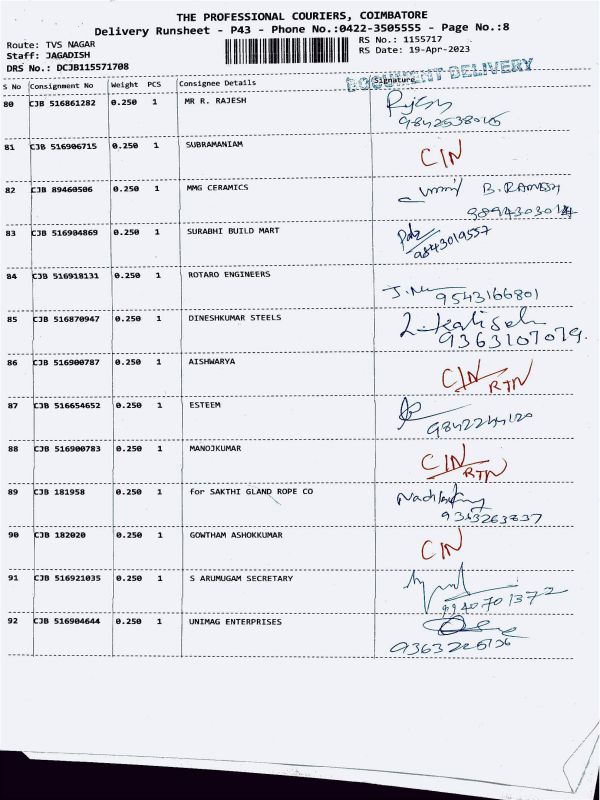 THE PROFESSIONAL COURIERS, COIMBATORE
Delivery Runsheet - P43 - Phone No.:0422-3505555 - Page No.:8
Route: TVS NAGAR RS No.: 1155717
Staff: JAGADISH RS Date: 19-Apr-2023
DRS No.: DCJB115571708 DOCUMENT DELIVERY
S No Consignment No Weight PCS Consignee Details Signature
80 CJB 516861282 0.250 1 MR R. RAJESH
9842538045
81 CJB 516906715 0.250 1 SUBRAMANIAM CIN
82 CJB 89460506 0.250 1 MMG CERAMICS B. RAMESH
83 CJB 516904869 0.250 1 SURABHI BUILD MART
9843019557
84 CJB 516918131 0.250 1 ROTARO ENGINEERS
9543166801
85 CJB 516870947 0.250 1 DINESHKUMAR STEELS
9363107079.
86 CJB 516900787 0.250 1 AISHWARYA CIN
RTN
87 CJB 516654652 0.250 1 ESTEEM
9842244120
88 CJB 516900783 0.250 1 MANOJKUMAR CIN
RTN
89 CJB 181958 0.250 1 for SAKTHI GLAND ROPE CO
90 CJB 182020 0.250 1 GOWTHAM ASHOKKUMAR CIN
91 CJB 516921035 0.250 1 S ARUMUGAM SECRETARY
9940701372
92 CJB 516904644 0.250 1 UNIMAG ENTERPRISES